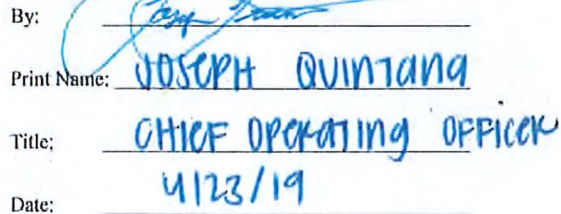 By:
Print Name: JOSEPH QUINTANA
Title: CHIEF OPERATING OFFICER
Date: 4/23/19